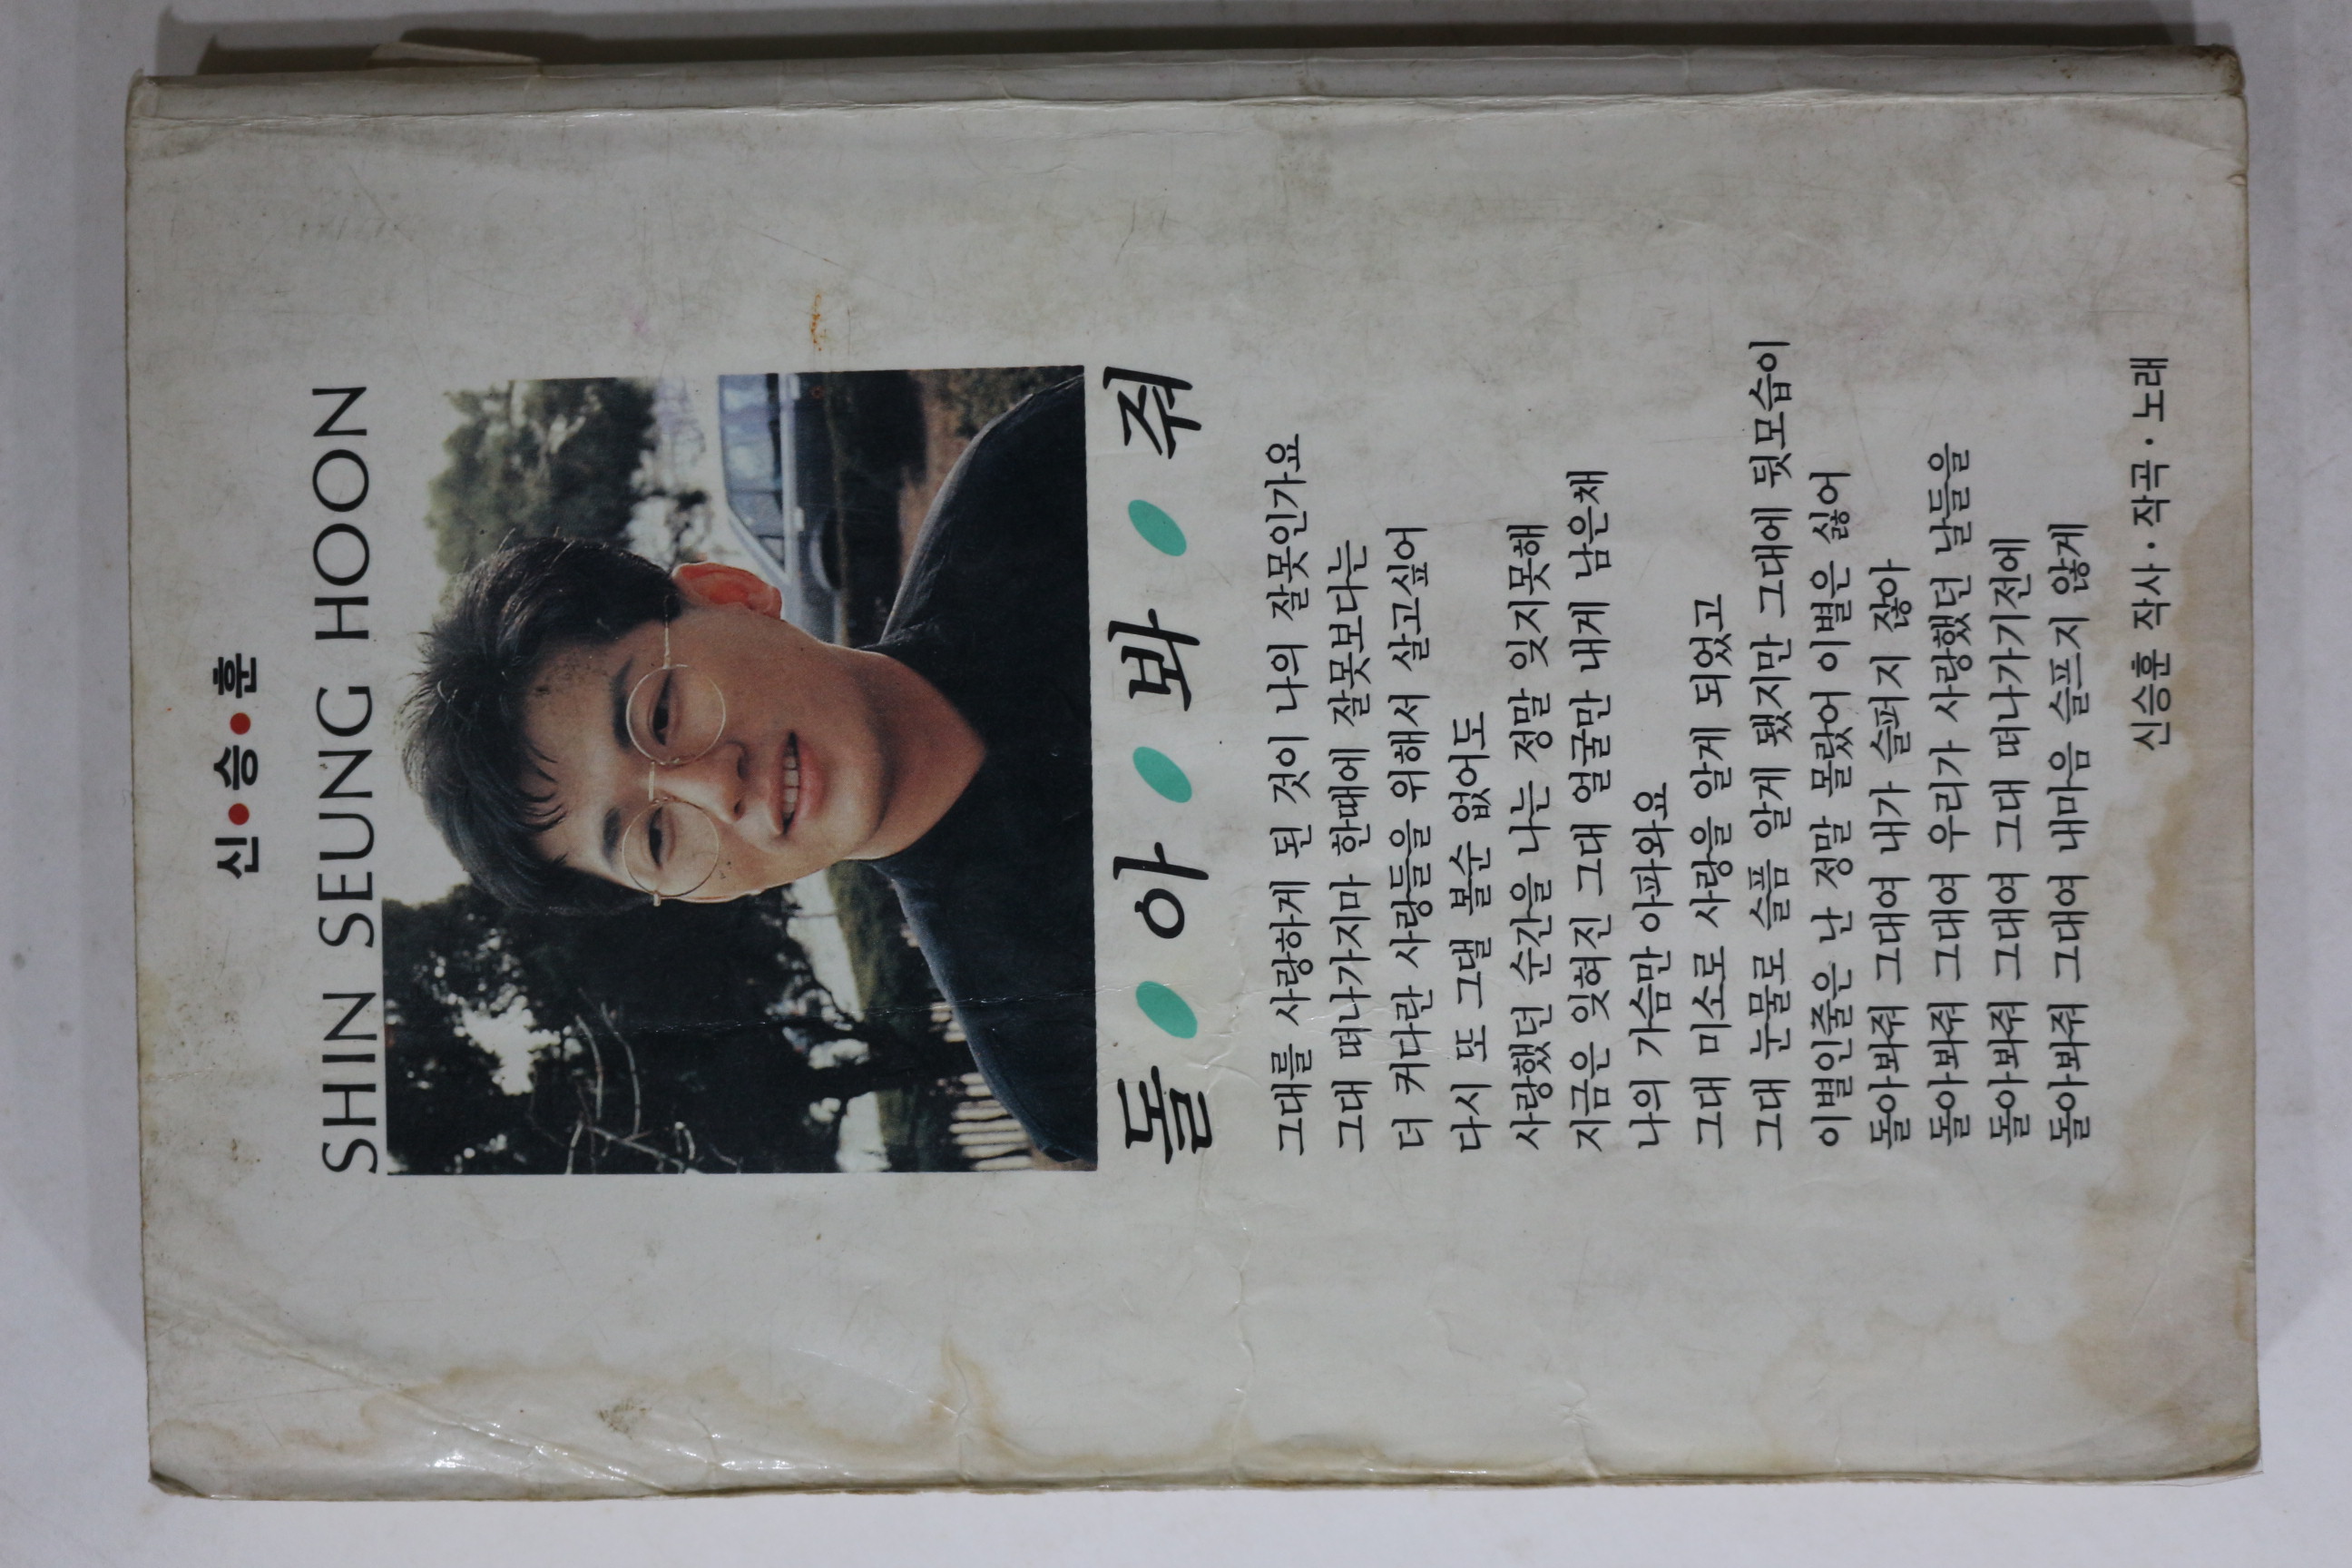 신•승•훈
SHIN SEUNG HOON
돌•아•봐•줘
그대를 사랑하게 된 것이 나의 잘못인가요
그대 떠나가지마 한때에 잘못보다는
더 커다란 사랑들을 위해서 살고싶어
다시 또 그댈 볼순 없어도
사랑했던 순간을 나는 정말 잊지못해
지금은 잊혀진 그대 얼굴만 내게 남은채
나의 가슴만 아파와요
그대 미소로 사랑을 알게 되었고
그대 눈물로 슬픔 알게 됐지만 그대에 뒷모습이
이별인줄은 난 정말 몰랐어 이별은 싫어
돌아봐줘 그대여 내가 슬퍼지 잖아
돌아봐줘 그대여 우리가 사랑했던 날들을
돌아봐줘 그대여 그대 떠나가기전에
돌아봐줘 그대여 내마음 슬프지 않게
신승훈 작사·작곡·노래